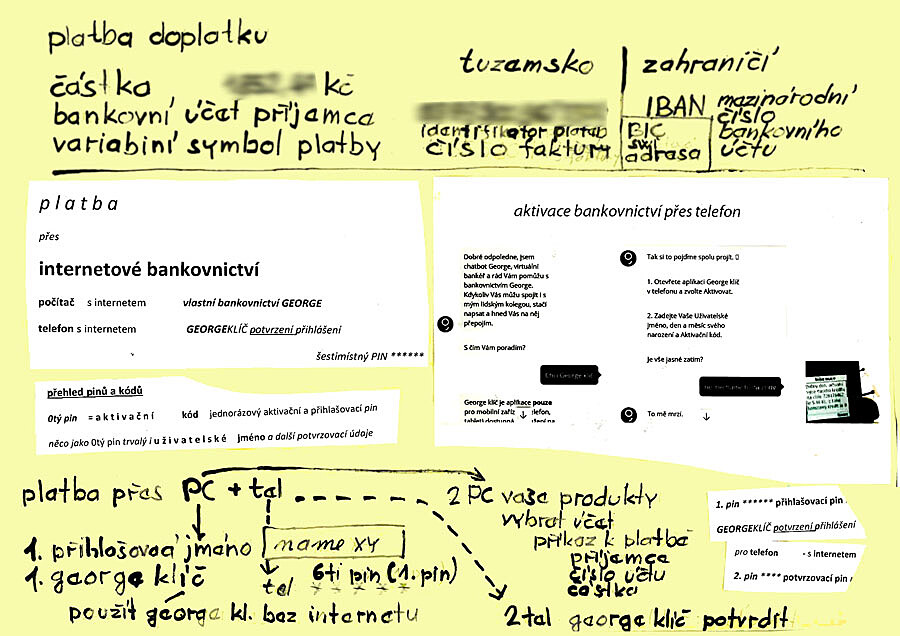 platba doplatku
částka kč
bankovní účat příjamca
variabiní symbol platby
tuzamsko
identifikator platab
číslo faktury
zahraničí
IBAN mazinárodní
číslo
bankovního
účtu
BIC
swij
adrasa
platba
přes
internetové bankovnictví
počítač s internetem vlastní bankovnictví GEORGE
telefon s internetem GEORGEKLÍČ potvrzení přihlášení
šestimístný PIN ******
přehled pinů a kódů
0tý pin = aktivační kód jednorázový aktivační a přihlašovací pin
něco jako 0tý pin trvalý i uživatelské jméno a další potvrzovací údaje
aktivace bankovnictví přes telefon
Dobré odpoledne, jsem
chatbot George, virtuální
bankéř a rád Vám pomůžu s
bankovnictvím George.
Kdykoliv Vás můžu spojit i s
mým lidským kolegou, stačí
napsat a hned Vás na něj
přepojím.
S čím Vám poradím?
George klíč je aplikace pouze
pro mobilní zaříz lefon,
Tak si to pojďme spolu projít.
1. Otevřete aplikaci George klíč
v telefonu a zvolte Aktivovat.
2. Zadejte Vaše Uživatelské
jméno, den a měsíc svého
narození a Aktivační kód.
Je vše jasné zatím?
To mě mrzí.
platba přas PC + tal
1. přihlošovací jmáno name xy
1. gaorga klíč
tal 6ti pin (1. pin)
* * * * * *
použít gaorga kl. baz internatu
2 PC vaša produkty
vybrat účat
příkaz k platbě
příjamca
číslo účtu
částka
2 tal gaorga klíč potvrdit
1. pin ****** přihlašovací pin
GEORGEKLÍČ potvrzení přihlášení
pro telefon - s internetem
2. pin **** potvrzovací pin